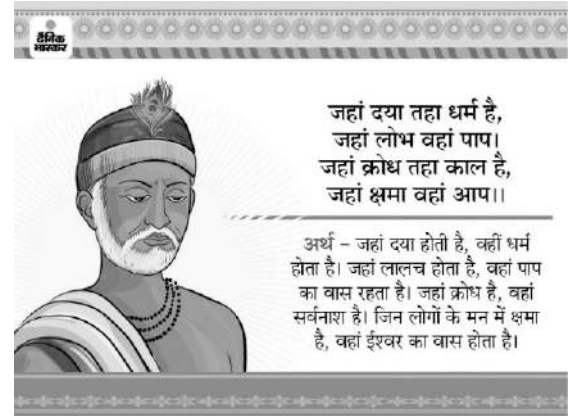 दैनिक
भास्कर
जहां दया तहा धर्म है,
जहां लोभ वहां पाप।
जहां क्रोध तहा काल है,
जहां क्षमा वहां आप।।
अर्थ – जहां दया होती है, वहीं धर्म
होता है। जहां लालच होता है, वहां पाप
का वास रहता है। जहां क्रोध है, वहां
सर्वनाश है। जिन लोगों के मन में क्षमा
है, वहां ईश्वर का वास होता है।